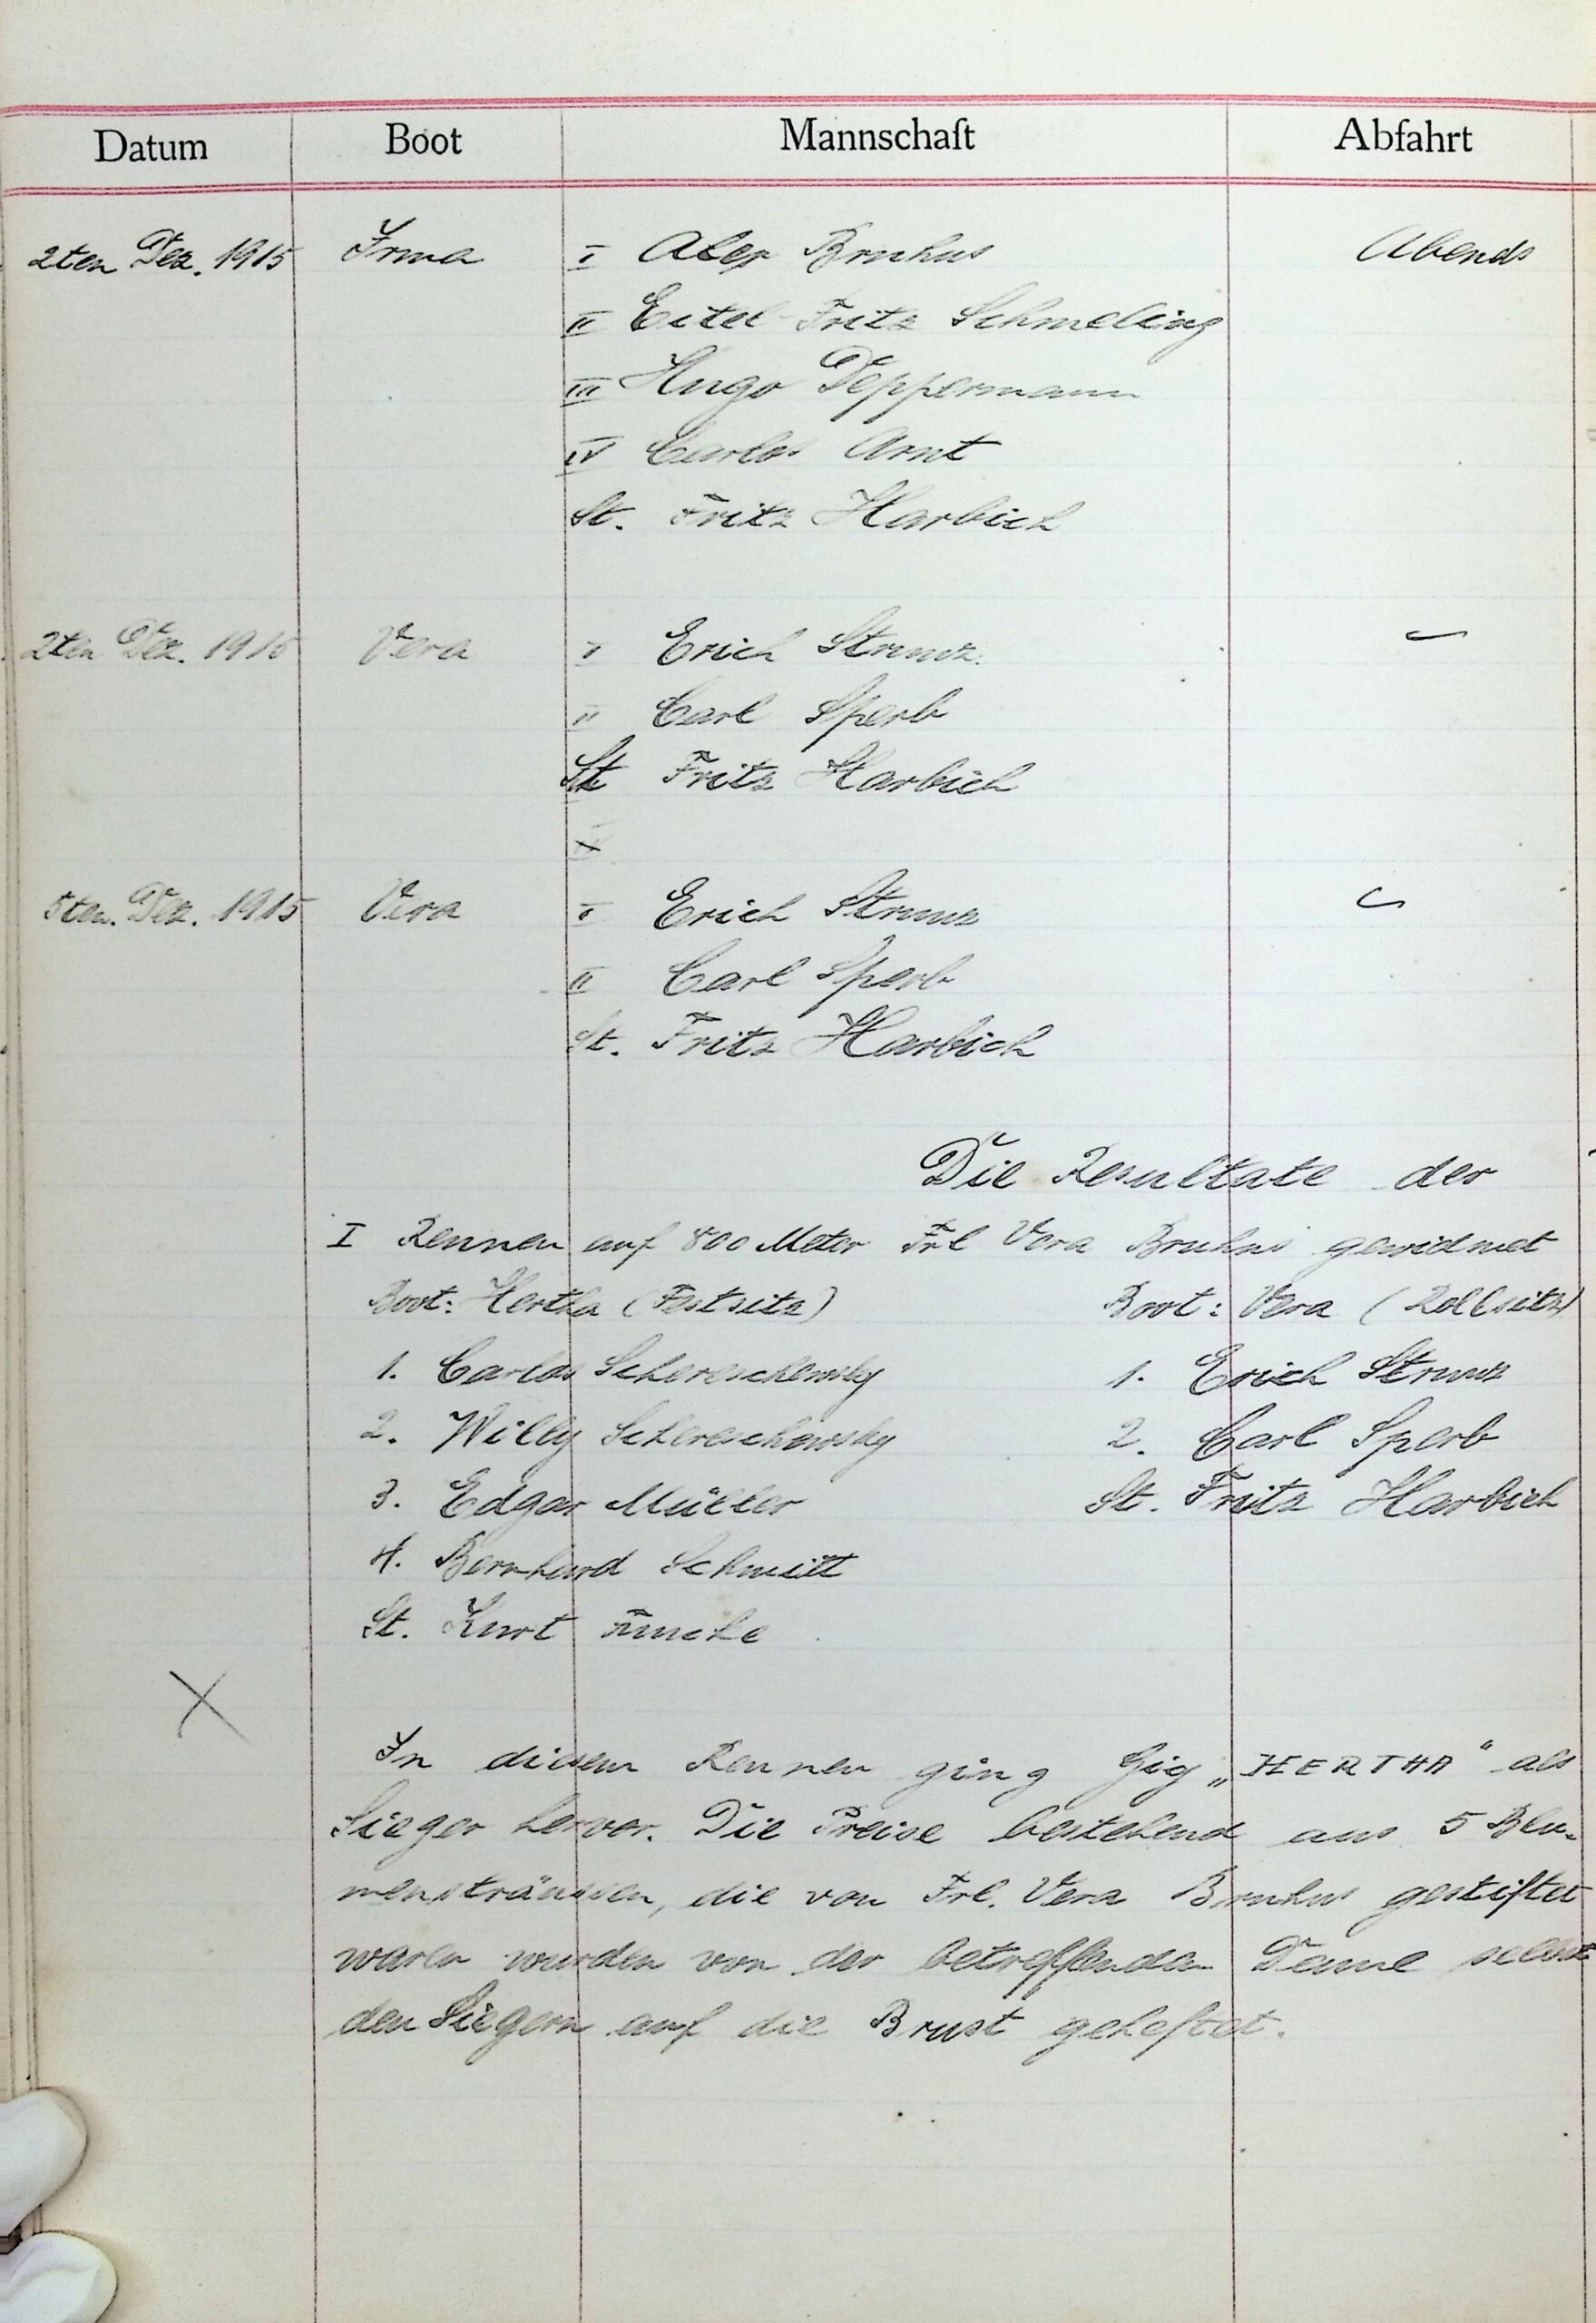 Datum Boot Mannschaft Abfahrt
2ten Dez. 1915 Irma I Alex Bruhns Abends
II Eitel Fritz Schmeling
III Hugo Deppermann
IV Carlos Arnt
St. Fritz Harbich
2ten Dez. 1915 Vera I Erich Strunz.
II Carl Sperb
St Fritz Harbich
5ten. Dez. 1915 Vera I Erich Strunz
II Carl Sperb
St. Fritz Harbich
Die Resultate der
I Rennen auf 800 Meter Frl Vera Bruhns gewidmet
Boot: Hertha (Festsitz) Boot: Vera (Rollsitz)
1. Carlos Schereschewsky 1. Erich Strunz
2. Willy Schereschewsky 2. Carl Sperb
3. Edgar Müller St. Fritz Harbich
4. Bernhard Schmitt
St. Kurt Funcke
In diesem Rennen ging Gig „HERTHA“ als
Sieger hervor. Die Preise bestehend aus 5 Blu-
mensträussen, die von Frl. Vera Bruhns gestiftet
waren wurden von der betreffenden Dame selbst
den Siegern auf die Brust geheftet.